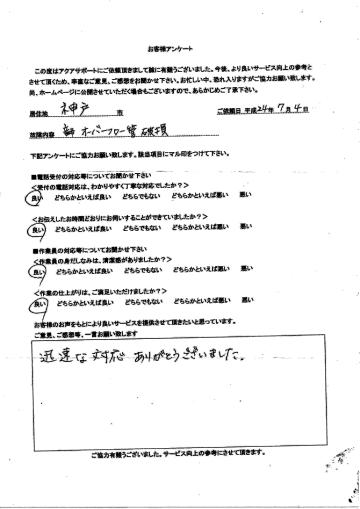 お客様アンケート
この度はアクアサポートにご依頼頂きまして誠に有難うございました。今後、より良いサービス向上の参考と
させて頂くため、率直なご意見、ご感想をお聞かせ下さい。お忙しい中、恐れ入りますがご協力お願い致します。
尚、ホームページに公開させていただく場合もございますので、あらかじめご了承下さい。
居住地 神戸 市 ご依頼日 平成24年7月4日
故障内容 オーバーフロー管 破損
下記アンケートにご協力お願い致します。該当項目にマル印をつけて下さい。
■電話受付の対応等についてお聞かせ下さい
<受付の電話対応は、わかりやすく丁寧な対応でしたか?>
良い どちらかといえば良い どちらでもない どちらかといえば悪い 悪い
<お伝えしたお時間どおりにお伺いすることができていましたか?>
良い どちらかといえば良い どちらでもない どちらかといえば悪い 悪い
■作業員の対応等についてお聞かせ下さい
<作業員の身だしなみは、清潔感がありましたか?>
良い どちらかといえば良い どちらでもない どちらかといえば悪い 悪い
<作業の仕上がりは、ご満足いただけましたか?>
良い どちらかといえば良い どちらでもない どちらかといえば悪い 悪い
お客様のお声をもとにより良いサービスを提供させて頂きたいと思っています。
ご意見、ご感想等、一言お願い致します
迅速な対応 ありがとうございました。
ご協力有難うございました。サービス向上の参考にさせて頂きます。